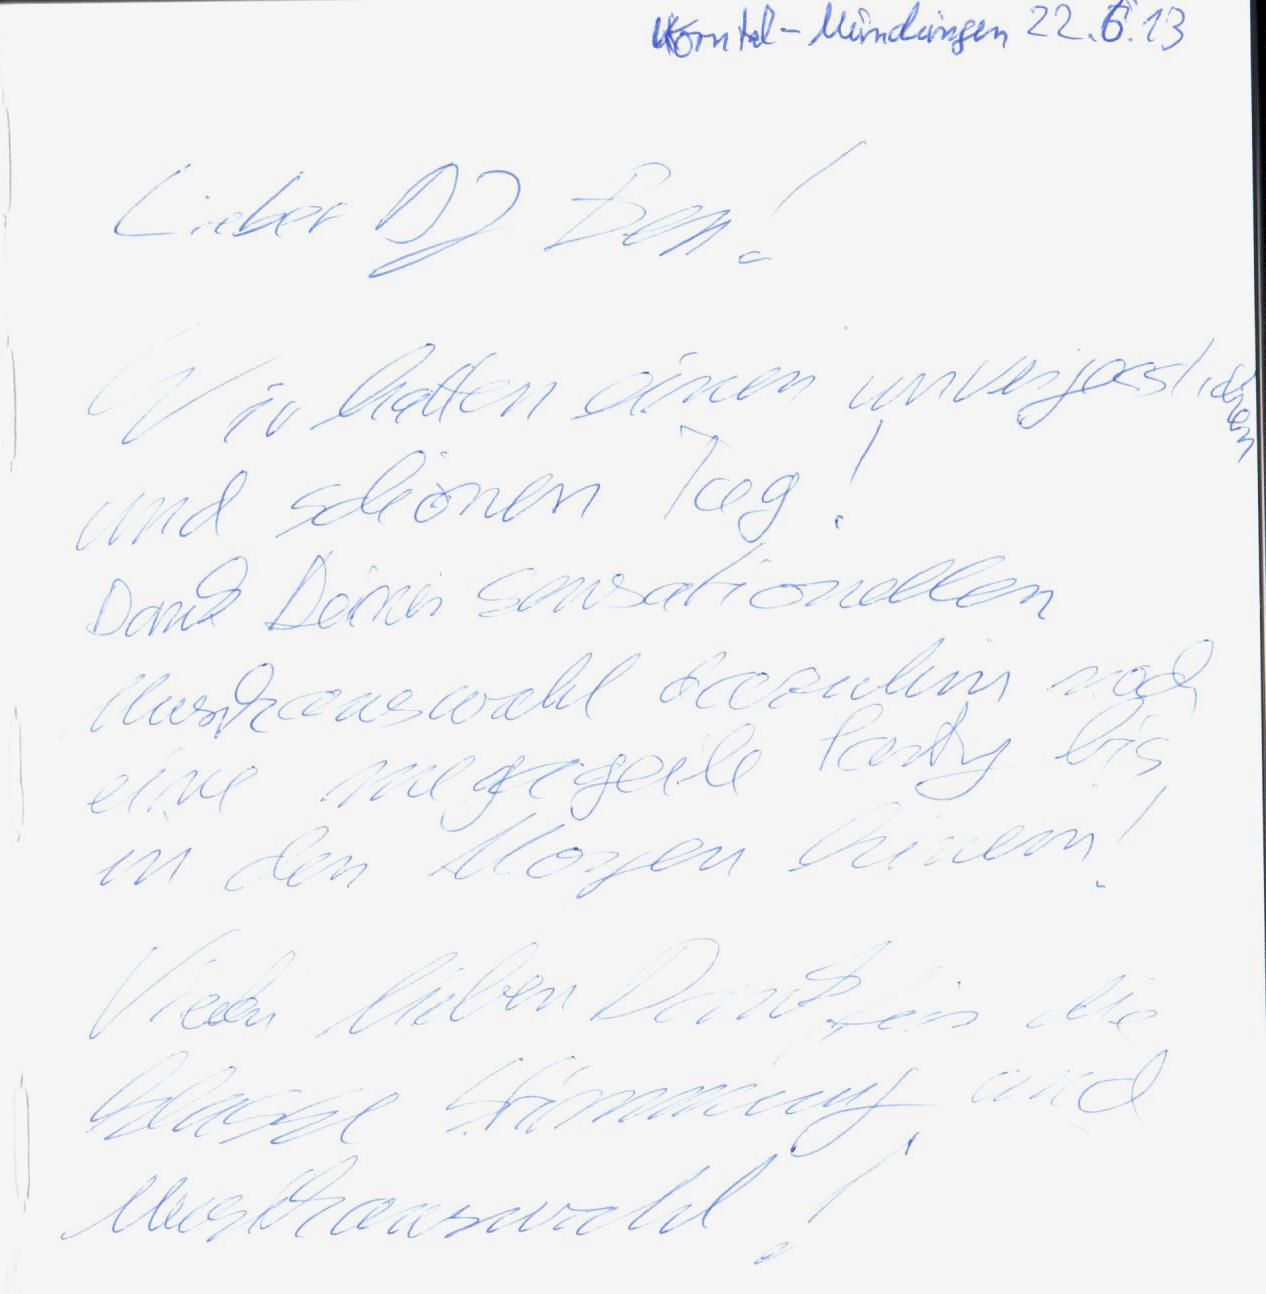 Korntal-Münchingen 22.6.13
Lieber DJ Ben!
Wir hatten einen unvergesslichen
und schönen Tag!
Dank Deiner sensationellen
Musikauswahl
eine megageile Party bis
in den Morgen hinein!
Vielen lieben Dank für die
klasse Stimmung und
Musikauswahl!